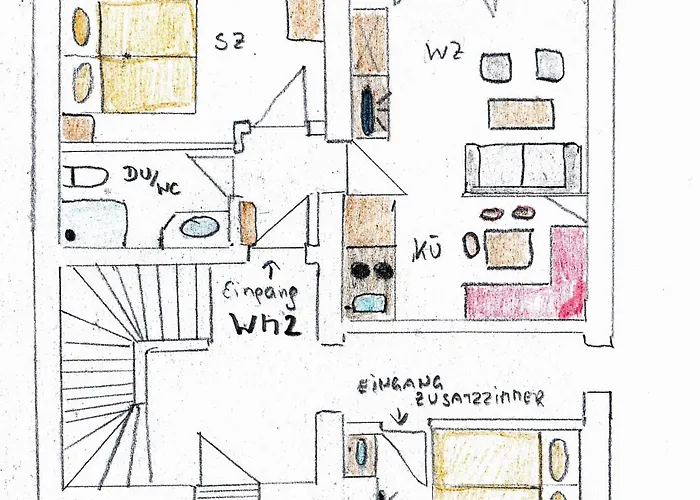 SZ
WZ
DU/WC
KÜ
Eingang
WH2
EINGANG
ZUSATZZIMMER